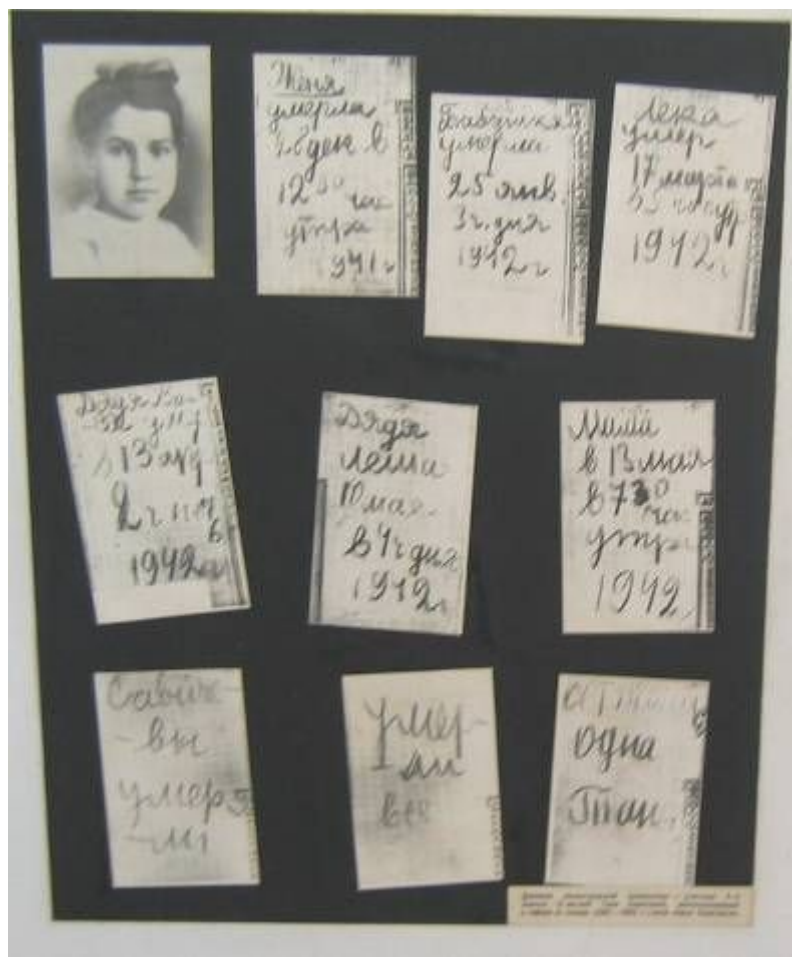 Женя
умерла
28 дек в
12 00 час
утра
1941 г
Бабушка
умерла
25 янв.
3 ч. дня
1942 г
Лека
умер
17 марта
в 5 час утр
1942 г
Дядя Ва-
ся ум
в 13 апр
2 ч ноч
1942 г
Дядя
Леша
10 мая
в 4 ч дня
1942 г
Мама
в 13 мая
в 7 30
час
утра
1942
Савиче-
-вы
умер
-ли
умер-
-ли
все
одна
Тан.